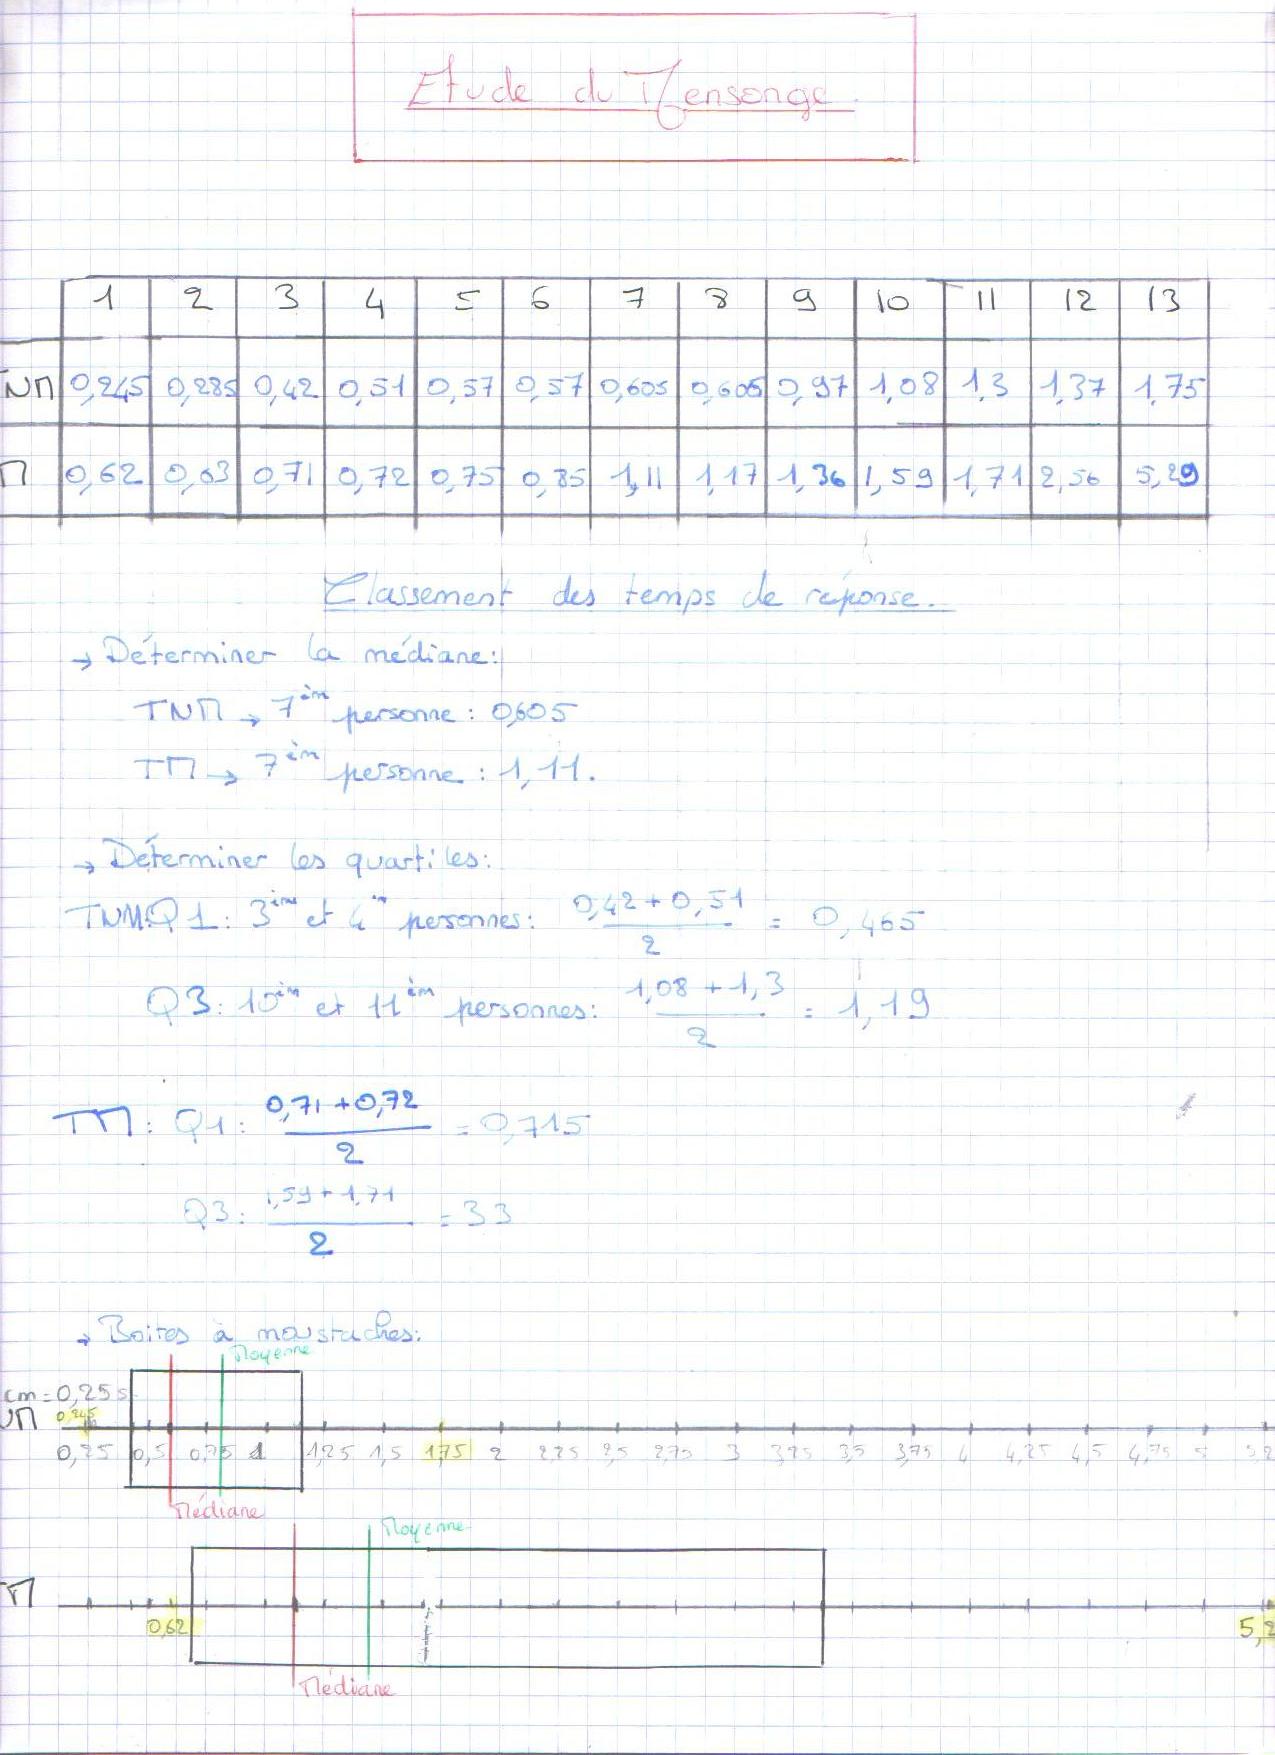 Etude du Mensonge.
1 2 3 4 5 6 7 8 9 10 11 12 13
TNM 0,245 0,285 0,42 0,51 0,57 0,57 0,605 0,605 0,97 1,08 1,3 1,37 1,75
M 0,62 0,63 0,71 0,72 0,75 0,85 1,11 1,17 1,36 1,59 1,71 2,56 5,29
Classement des temps de réponse.
→ Déterminer la médiane:
TNM → 7èm personne : 0,605
TM → 7èm personne : 1,11.
→ Déterminer les quartiles:
TNM Q1: 3ème et 4èm personnes: (0,42+0,51)/2 = 0,465
Q3: 10èm et 11èm personnes: (1,08+1,3)/2 = 1,19
TM: Q1: (0,71+0,72)/2 = 0,715
Q3: (1,59+1,71)/2 = 33
→ Boites à moustaches:
Moyenne
cm = 0,25 s
NM 0,245
0,25 0,5 0,75 1 1,25 1,5 1,75 2 2,25 2,5 2,75 3 3,25 3,5 3,75 4 4,25 4,5 4,75 5 5,2
Médiane
Moyenne
TM
0,62 5,2
Médiane